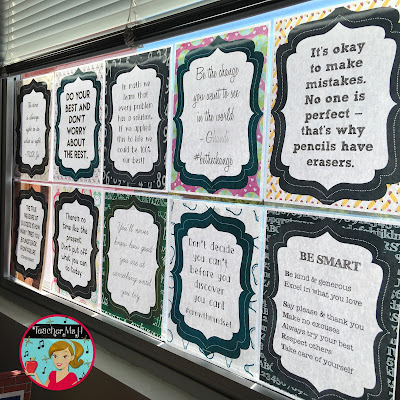 is always
right to do
what is
right.
DO YOUR
BEST AND
DON'T
WORRY
ABOUT
THE REST.
In math we
learn that
every problem
has a solution.
If we applied
this to life we
could be 100%
our best!
Be the change
you want to see
in the world
- Ghandi
#bethechange
It's okay
to make
mistakes.
No one is
perfect –
that's why
pencils have
erasers.
THE TRUE
MEASURE OF
SUCCESS IS HOW
MANY TIMES YOU
CAN BOUNCE BACK
FROM
FAILURE.
There's no
time like the
present.
Don't put off
what you can
do today.
You'll never
know how good
you are at
something until
you try.
Don't decide
you can't
before you
discover
you can!
#growthmindset
BE SMART
Be kind & generous
Excel in what you love
Say please & thank you
Make no excuses
Always try your best
Respect others
Take care of yourself
*Teacher Ms H*